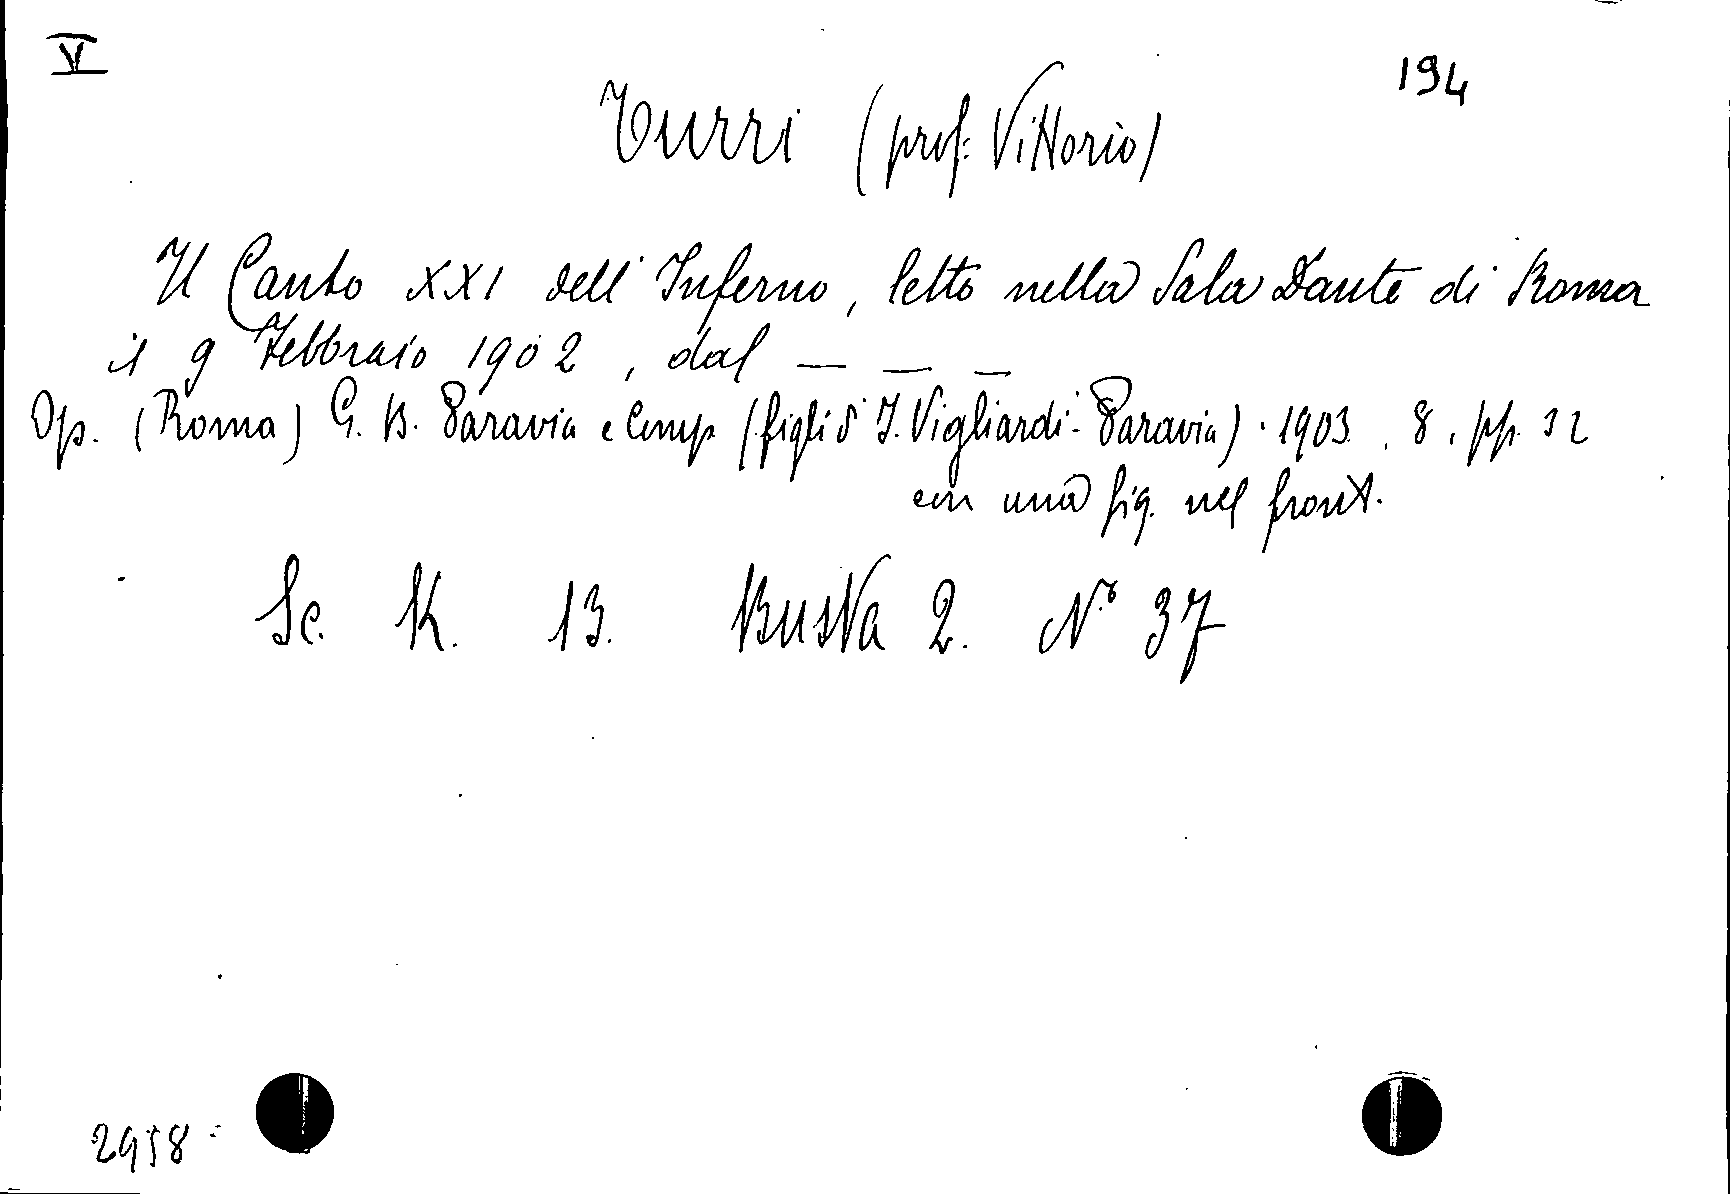 VI
194
Turri (prof. Vittorio)
Il Canto XXI dell' Inferno, letto nella Sala Dante di Roma
il 9 Febbraio 1902, dal _ _ _
Op. (Roma) G. B. Paravia e Comp (figli di I. Vigliardi-Paravia). 1903. 8. pp. 32
con una fig. nel front.
Sc. K. 13. Busta 2. N.º 37
2958